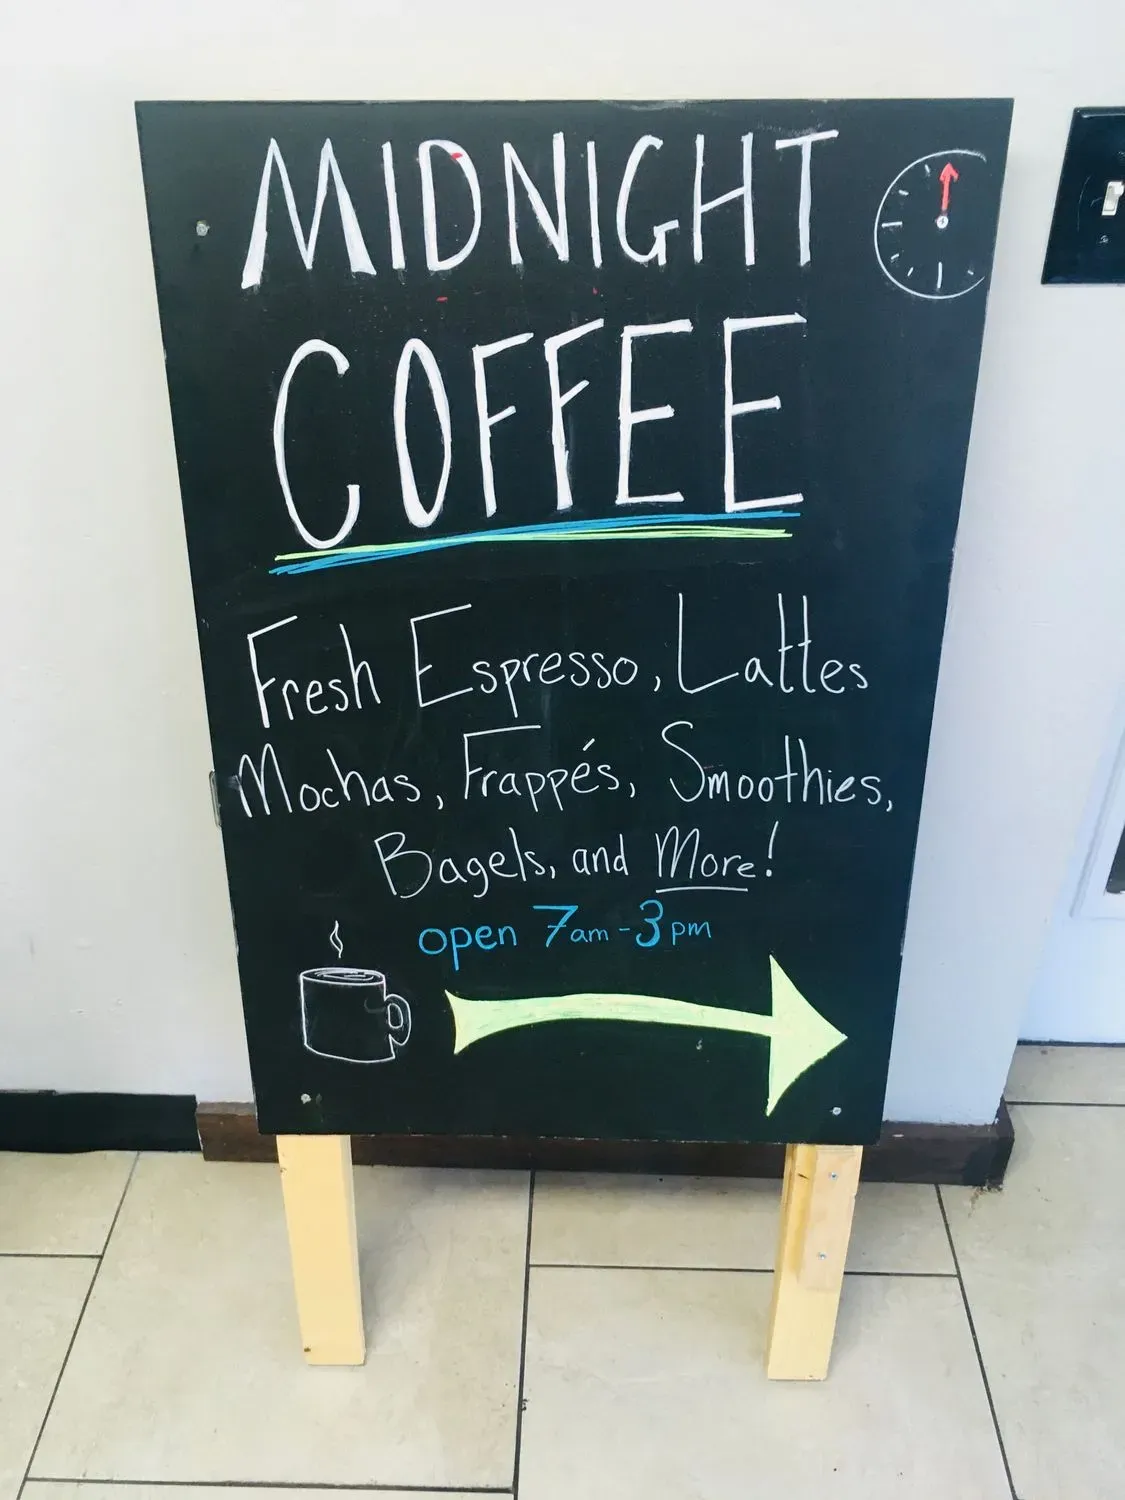 MIDNIGHT
COFFEE
Fresh Espresso, Lattes
Mochas, Frappés, Smoothies,
Bagels, and More!
open 7am - 3pm